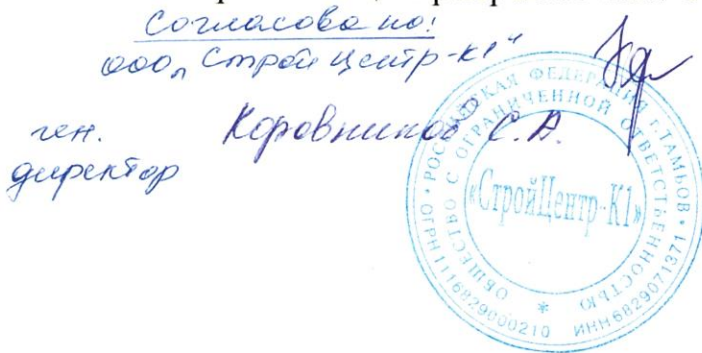 Согласовано:
ООО „Строй Центр-К1"
ген. Коровников С.А.
директор
РОССИЙСКАЯ ФЕДЕРАЦИЯ г.ТАМБОВ
ОБЩЕСТВО С ОГРАНИЧЕННОЙ ОТВЕТСТВЕННОСТЬЮ
«СтройЦентр-К1»
*
ОГРН 1116829000210 ИНН 6829071371